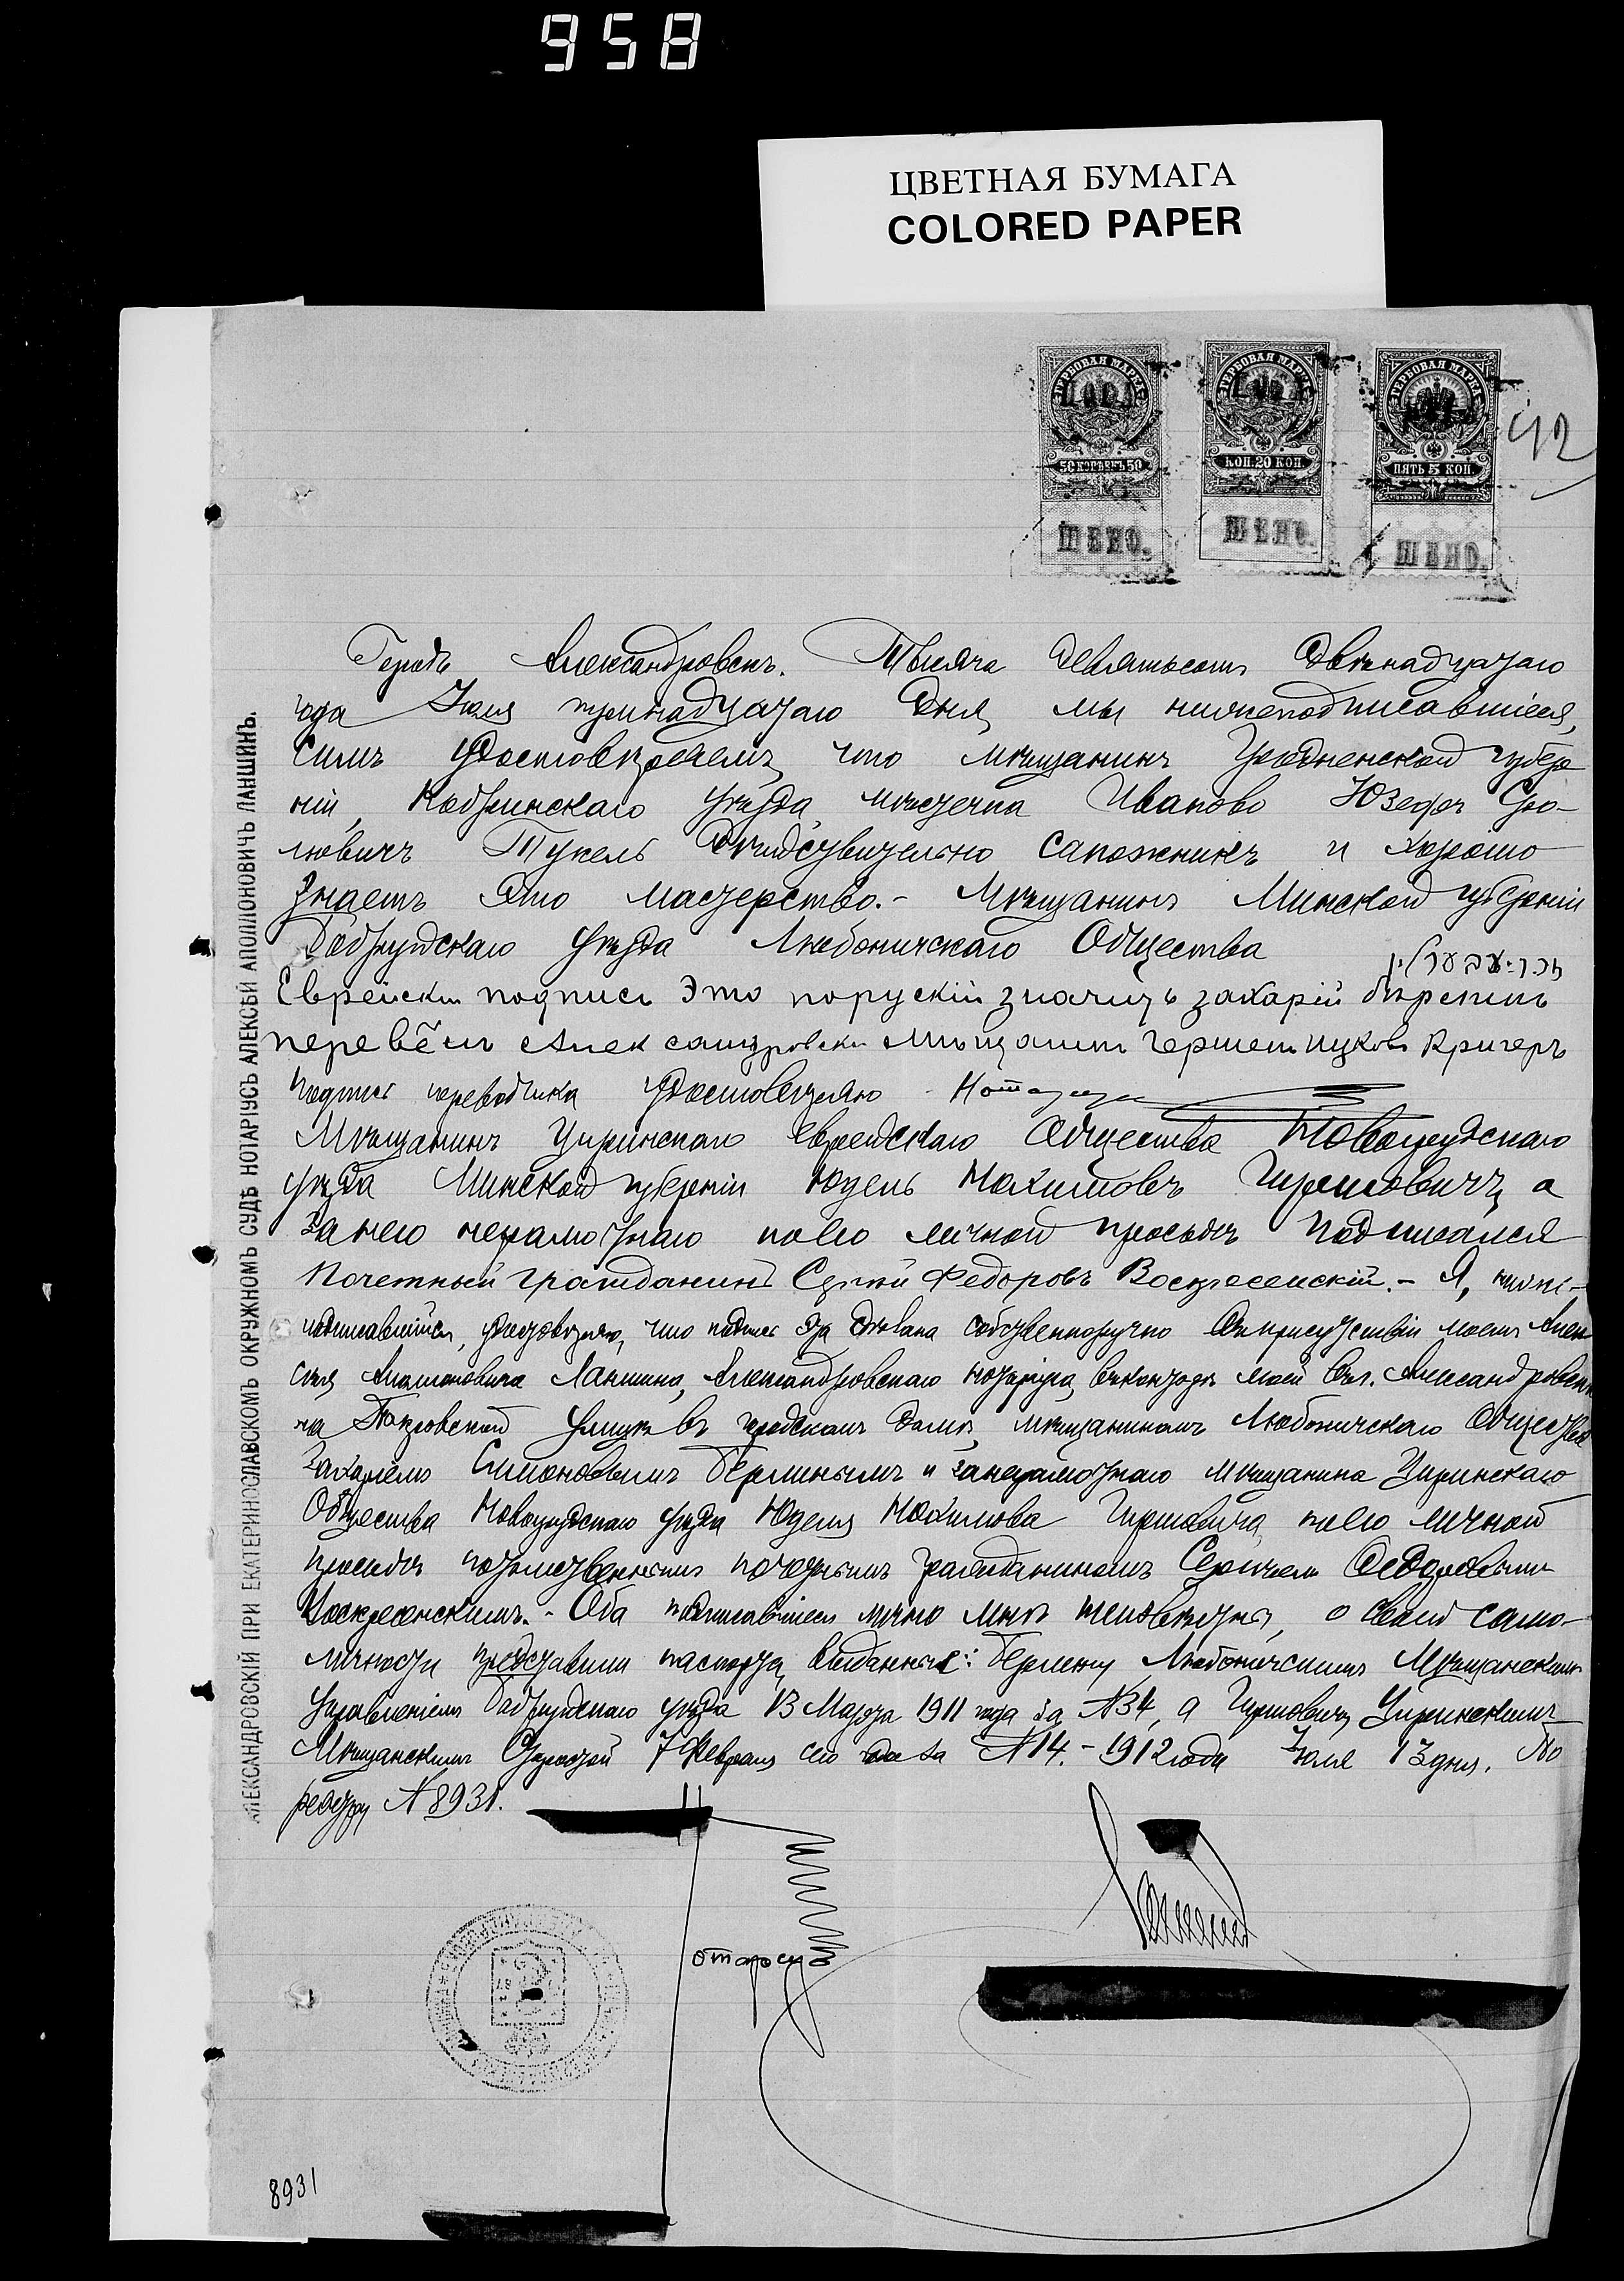 958
ЦВЕТНАЯ БУМАГА
COLORED PAPER
ГЕРБОВАЯ МАРКА ГЕРБОВАЯ МАРКА ГЕРБОВАЯ МАРКА
50 КОПѢЕКЪ 50 КОП. 20 КОП. ПЯТЬ 5 КОП.
ШЕНО. ШЕНО. ШЕНО.
42
АЛЕКСАНДРОВСКІЙ ПРИ ЕКАТЕРИНОСЛАВСКОМЪ ОКРУЖНОМЪ СУДѢ НОТАРІУСЪ АЛЕКСѢЙ АПОЛЛОНОВИЧЪ ЛАНШИНЪ.
Городъ Александровскъ. Тысяча девятьсотъ двѣнадцатаго
года Іюля тринадцатаго дня, мы нижеподписавшіеся,
симъ удостовѣряемъ, что мѣщанинъ Гродненской губер
ніи, Кобринскаго уѣзда, мѣстечка Иваново Юзефъ Сро-
левичъ Тукель дѣйствительно сапожникъ и хорошо
знаетъ это мастерство.- Мѣщанинъ Минской губерніи
Бобруйскаго уѣзда Любоничскаго Общества
Еврейски подпись это порускій значитъ захарій берлинъ
перевёлъ Александровски Мѣщанинъ Гершенъ Ицковъ Кригеръ
Подпись переводчика удостовѣряю Нотаріусъ
Мѣщанинъ Циринскаго Еврейскаго Общества Новогрудскаго
уѣзда Минской губерніи Юдель Нохимовъ Гиршовичъ, а
за него неграмотнаго по его личной просьбѣ подписался
Почетный Гражданинъ Сергѣй Федоровъ Воскресенскій.- Я, ниже-
подписавшійся, удостовѣряю, что подпись эта сдѣлана собственноручно въ присутствіи моемъ Алек
сѣя Аполлоновича Ланшина, Александровскаго нотаріуса, въ конторѣ моей въ г. Александровскѣ
на Покровской улицѣ въ городскомъ домѣ, мѣщаниномъ Любоничскаго Общества
Захаріемъ Симоновымъ Берлинымъ и за неграмотнаго мѣщанина Циринскаго
Общества Новогрудскаго уѣзда Юделя Нохимова Гиршовича, по его личной
просьбѣ потомственнымъ почетнымъ гражданиномъ Сергѣемъ Федоровымъ
Воскресенскимъ.- Оба подписавшіеся лично мнѣ неизвѣстны, о своей само-
личности представили паспорта, выданные: Берлину Любоничскимъ Мѣщанскимъ
Управленіемъ Бобруйскаго уѣзда 13 Марта 1911 года за №34, а Гиршовичу Циринскимъ
Мѣщанскимъ Старостой 7 Февраля сего года за №14.- 1912 года Іюля 13 дня. По
реестру №8931.
Нотаріусъ
8931